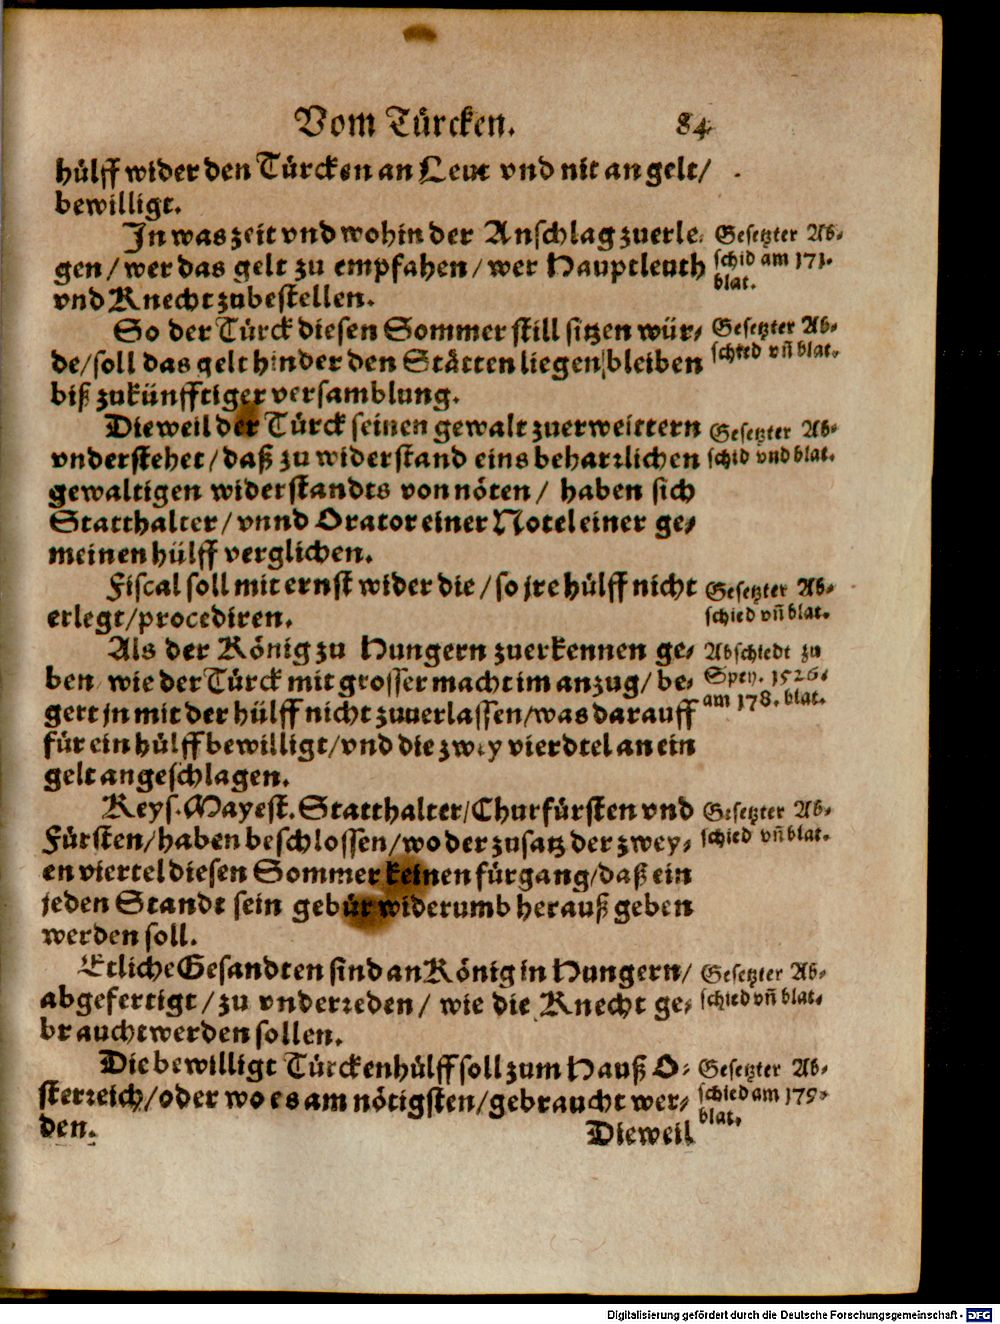 Vom Türcken. 84
hülff wider den Türcken an Leut vnd nit an gelt/
bewilligt.
In was zeit vnd wohin der Anschlag zuerle-
gen/wer das gelt zu empfahen/wer Hauptleuth
vnd Knecht zubestellen.
Gesetzter Ab-
schid am 171.
blat.
So der Türck diesen Sommer still sitzen wür-
de/soll das gelt hinder den Stätten liegen bleiben
biß zukünfftiger versamblung.
Gesetzter Ab-
schied vn̄ blat.
Dieweil der Türck seinen gewalt zuerweittern
vnderstehet/daß zu widerstand eins beharrlichen
gewaltigen widerstandts von nöten/ haben sich
Statthalter/vnnd Orator einer Notel einer ge-
meinen hülff verglichen.
Gesetzter Ab-
schid vnd blat.
Fiscal soll mit ernst wider die/so jre hülff nicht
erlegt/procediren.
Gesetzter Ab-
schied vn̄ blat.
Als der König zu Hungern zuerkennen ge-
ben wie der Türck mit grosser macht im anzug/be-
gert jn mit der hülff nicht zuuerlassen/was darauff
für ein hülff bewilligt/vnd die zwey vierdtel an ein
gelt angeschlagen.
Abschiedt zu
Spey. 1526.
am 178. blat.
Keys. Mayest. Statthalter/Churfürsten vnd
Fürsten/haben beschlossen/wo der zusatz der zwey-
en viertel diesen Sommer keinen fürgang/daß ein
jeden Standt sein gebür widerumb herauß geben
werden soll.
Gesetzter Ab-
schied vn̄ blat.
Etliche Gesandten sind an König in Hungern/
abgefertigt/zu vnderreden/ wie die Knecht ge-
braucht werden sollen.
Gesetzter Ab-
schied vn̄ blat.
Die bewilligt Türckenhülff soll zum Hauß O-
sterreich/oder wo es am nötigsten/gebraucht wer-
den.
Gesetzter Ab-
schied am 179.
blat.
Dieweil
Digitalisierung gefördert durch die Deutsche Forschungsgemeinschaft - DFG